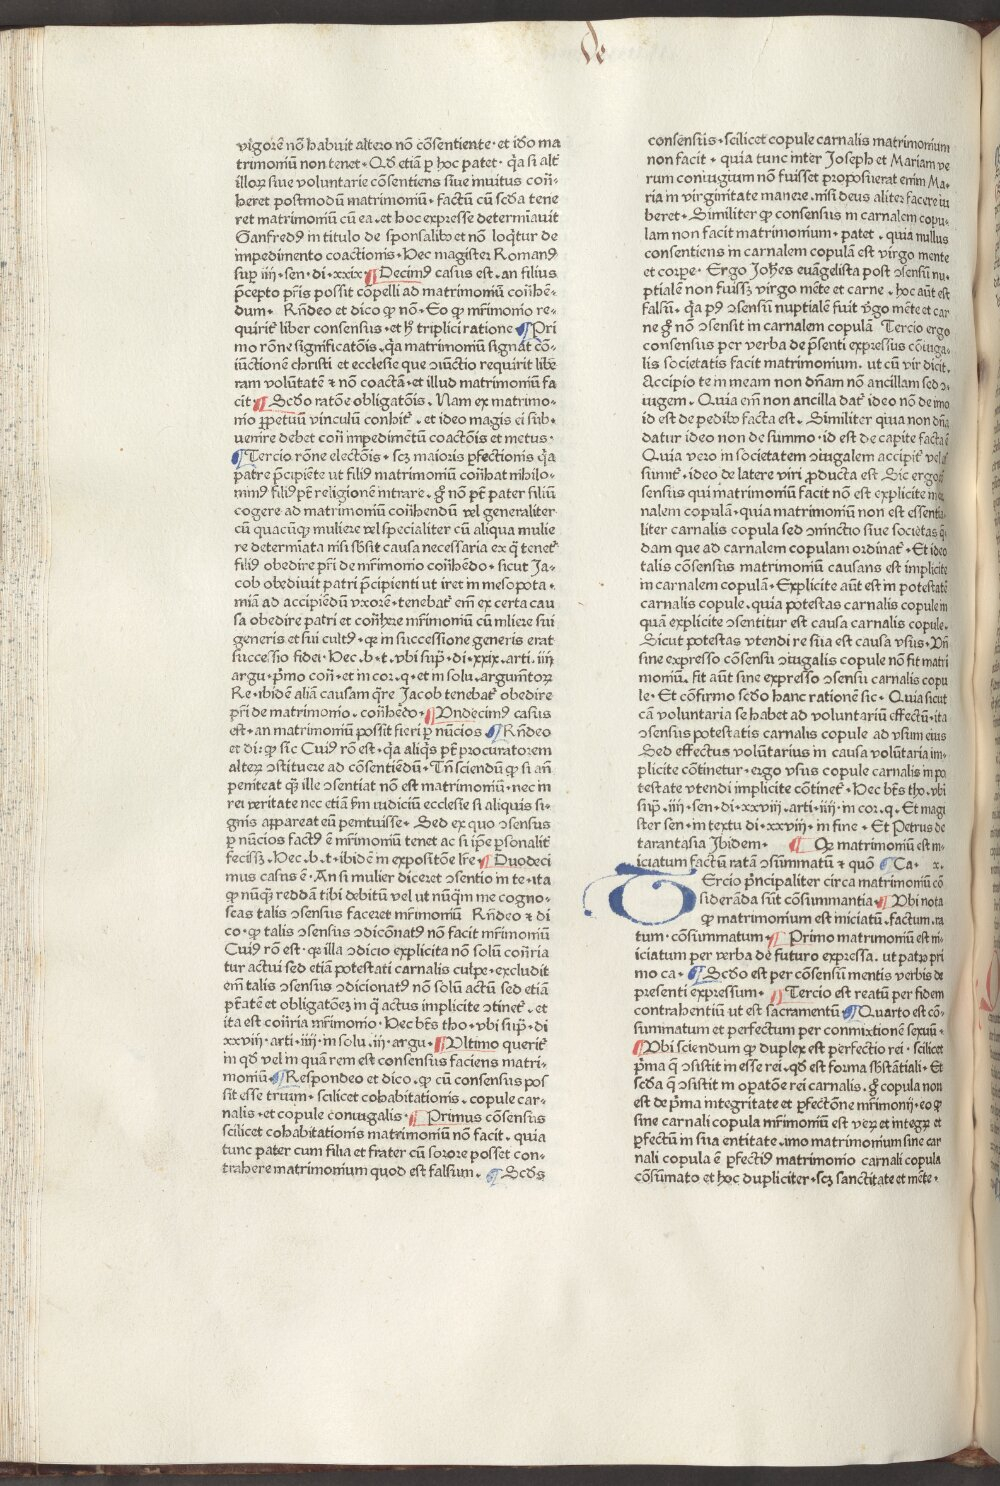 de
vigorē nō habuit altero nō cōsentiente · et iđo ma
trimoniū non tenet · Qđ etiā ꝑ hoc patet · q̄a si alt̄
illoꝝ siue voluntarie cōsentiens siue inuitus coñ-
heret postmodū matrimoniū · factū cū scđa tene
ret matrimoniū cū ea · et hoc expresse determīauit
Ganfredꝰ in titulo de sponsalibꝰ et nō loq̄tur de
impedimento coactionis · Hec magister Romanꝰ
sup̄ iiii · sen · di · xxix · ¶ Decimꝰ casus est · an filius
p̄cepto pr̄is possit cōpelli ad matrimoniū coñhē-
dum · Rñdeo et dico ꝙ nō · Eo ꝙ mr̄imonio re-
quirit̄ liber consensus · et h̄ triplici ratione ¶ Pri
mo rōne significatōis · q̄a matrimoniū signat cō-
iūctionem christi et ecclesie que ↄiūctio requirit libe
ram volūtatē ⁊ nō coactā · et illud matrimoniū fa
cit · ¶ Scđo ratōe obligatōis · Nam ex matrimo-
nio ꝑpetuū vinculū conhit̄ · et ideo magis ei sub-
uenire debet coñ impedimētū coactōis et metus ·
¶ Tercio rōne electōis · scꝫ maioris ꝑfectionis q̄a
patre p̄cipiēte ut filiꝰ matrimoniū coñhat nihilo-
minꝰ filiꝰ pt̄ religionē intrare · g̊ nō pt̄ pater filiū
cogere ad matrimoniū coñhendū vel generaliter
cū quacūqꝫ muliere vel specialiter cū aliqua mulie
re determīata nisi sb̄sit causa necessaria ex q̄ tenet̄
filiꝰ obedire pr̄i de mr̄imonio coñhēdo · sicut Ja-
cob obediuit patri p̄cipienti ut iret in mesopota-
miā ad accipiēdū vxorē · tenebat̄ em̄ ex certa cau
sa obedire patri et coñhere mr̄imoniū cū mliere sui
generis et sui cultꝰ · qꝛ in successione generis erat
successio fidei · Hec · b · t · vbi sup̄ · di · xxix · arti · iiii
argu · p̄mo coñ · et in cor · q · et in solu · argum̄toꝝ
Re · ibidē aliā causam q̄re Jacob tenebat̄ obedire
pr̄i de matrimonio · coñhēdo · ¶ Vndecimꝰ casus
est · an matrimoniū possit fieri ꝑ nūcios ¶ Rñdeo
et di: ꝙ sic Cuiꝰ rō est · q̄a aliq̄s pt̄ procuratorem
alteꝝ ↄstituere ad cōsentiēdū · Tñ sciendū ꝙ si añ
peniteat q̄ꝫ ille ↄsentiat nō est matrimoniū · nec in
rei veritate nec etiā s̄m iudiciū ecclesie si aliquis si-
gnis appareat eū penituisse · Sed ex quo ↄsensus
ꝑ nūcios factꝰ ē mr̄imoniū tenet ac si ip̄e ꝑsonalit̄
fecissꝫ · Hec · b · t · ibidē in expositōe lr̄e · ¶ Duodeci
mus casus ē · An si mulier diceret ↄsentio in te · ita
ꝙ nūq̄ꝫ reddā tibi debitū vel ut nūq̄m me cogno-
scas talis ↄsensus faceret mr̄imoniū Rñdeo ⁊ di
co · ꝙ talis ↄsensus ↄdicōnatꝰ nō facit mr̄imoniū
Cuiꝰ rō est · qꝛ illa ↄdicio explicita nō solū coñria
tur actui sed etiā potestati carnalis culpe · excludit
em̄ talis ↄsensus ↄdicionatꝰ nō solū actū sed etiā
pt̄atē et obligatōeꝫ in q̄ actus implicite ↄtinet̄ · et
ita est coñria mr̄imonio · Hec bt̄s tho · vbi sup̄ · di
xxviii · arti · iiii · in solu · iii · argu · ¶ Vltimo querit̄
in qđ vel in quā rem est consensus faciens matri-
moniū · ¶ Respondeo et dico · ꝙ cū consensus pos
sit esse trium · scilicet cohabitationis · copule car-
nalis · et copule coniugalis · ¶ Primus cōsensus
scilicet cohabitationis matrimoniū nō facit · quia
tunc pater cum filia et frater cū sorore posset con-
trahere matrimonium quod est falsum · ¶ Scđs
consensus · scilicet copule carnalis matrimonium
non facit · quia tunc inter Joseph et Mariam ve
rum coniugium nō fuisset proposuerat enim Ma-
ria in virginitate manere · nisi deus aliter facere iu
beret · Similiter ꝙ consensus in carnalem copu-
lam non facit matrimonium · patet · quia nullus
consentiens in carnalem copulā est virgo mente
et corpe · Ergo Joh̄es euāgelista post ↄsensū nu-
ptialē non fuissꝫ virgo mēte et carne · hoc aūt est
falsū · q̄a pꝰ ↄsensū nuptialē fuit v̊go mēte et car
ne g̊ nō ↄsensit in carnalem copulā Tercio ergo
consensus per verba de p̄senti expressus cōiuga-
lis societatis facit matrimonium · ut cū vir dicit ·
Accipio te in meam non dn̄am nō ancillam sed ↄ-
iugem · Quia em̄ non ancilla dat̄ ideo nō de imo
id est de pedibꝰ facta est · Similiter quia non dn̄a
datur ideo non de summo · id est de capite facta ē
Quia vero in societatem ↄiugalem accipit̄ vel
sumit̄ · ideo de latere viri ꝓducta est Sic ergo
sensus qui matrimoniū facit nō est explicite in
nalem copulā · quia matrimoniū non est essentia
liter carnalis copula sed ↄiunctio siue societas q̄
dam que ad carnalem copulam ordinat̄ · Et ideo
talis cōsensus matrimoniū causans est implicite
in carnalem copulā · Explicite aūt est in potestatē
carnalis copule · quia potestas carnalis copule in
quā explicite ↄsentitur est causa carnalis copule ·
Sicut potestas vtendi re sua est causa vsus · Vñ
sine expresso cōsensu ↄiugalis copule nō fit matri
moniū · fit aūt sine expresso ↄsensu carnalis copu
le · Et cōfirmo scđo hanc rationē sic · Quia sicut
cā voluntaria se habet ad voluntariū effectū · ita
ↄsensus potestatis carnalis copule ad vsum eius
Sed effectus volūtarius in causa volūtaria im-
plicite cōtinetur · ergo vsus copule carnalis in po
testate vtendi implicite cōtinet̄ · Hec bt̄s tho · vbi
sup̄ · iiii · sen · di · xxviii · arti · iiii · in cor · q · Et magi
ster sen · in textu di · xxviii · in fine · Et Petrus de
tarantasia Jbidem · ¶ Qꝛ matrimoniū est in-
iciatum factū ratā ↄsūmatū ⁊ quō ¶ Ca · x ·
Tercio p̄ncipaliter circa matrimoniū cō
siderāda sūt cōsummantia · ¶ Vbi nota
ꝙ matrimonium est iniciatū · factum · ra
tum · cōsummatum · ¶ Primo matrimoniū est in-
iciatum per verba de futuro expressa · ut patꝫ pri
mo ca · ¶ Scđo est per cōsensū mentis verbis de
presenti expressum · ¶ Tercio est reatū per fidem
contrahentiū ut est sacramentū · ¶ Quarto est cō-
summatum et perfectum per commixtionē sexuū ·
¶ Vbi sciendum ꝙ duplex est perfectio rei · scilicet
p̄ma q̄ ↄsistit in esse rei · qđ est forma sb̄stantiali · Et
scđa q̄ ↄsistit in opatōe rei carnalis · g̊ copula non
est de p̄ma integritate et ꝑfectōne mr̄imonij · eo ꝙ
sine carnali copula mr̄imoniū est veꝝ et integꝝ et
ꝑfectū in sua entitate · imo matrimonium sine car
nali copula ē ꝑfectiꝰ matrimonio carnali copula
cōsūmato et hoc dupliciter · scꝫ sanctitate et mēte ·